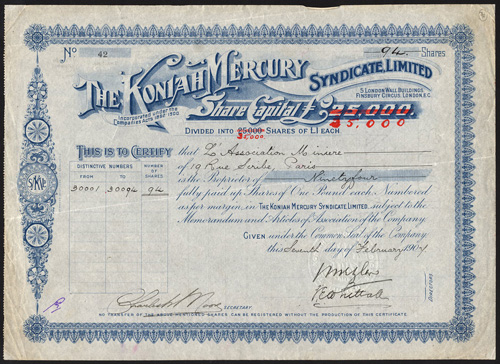 No 42
94 Shares
THE KONIAH MERCURY
SYNDICATE, LIMITED
Incorporated under the
Companies Acts 1862-1900.
5 LONDON WALL BUILDINGS
FINSBURY CIRCUS, LONDON, E.C.
Share Capital £25,000.
35,000
DIVIDED INTO 25,000 SHARES OF £1 EACH
35,000
THIS IS TO CERTIFY that L'Association Minière
DISTINCTIVE NUMBERS NUMBER OF SHARES
FROM TO
30001 30094 94
of 19 Rue Scribe, Paris
is the Proprietor of Ninety four
fully paid up Shares of One Pound each, Numbered
as per margin, in THE KONIAH MERCURY SYNDICATE LIMITED, subject to the
Memorandum and Articles of Association of the Company.
GIVEN under the Common Seal of the Company
this Seventh day of February 1904
DIRECTORS
SECRETARY.
NO TRANSFER OF THE ABOVE MENTIONED SHARES CAN BE REGISTERED WITHOUT THE PRODUCTION OF THIS CERTIFICATE.